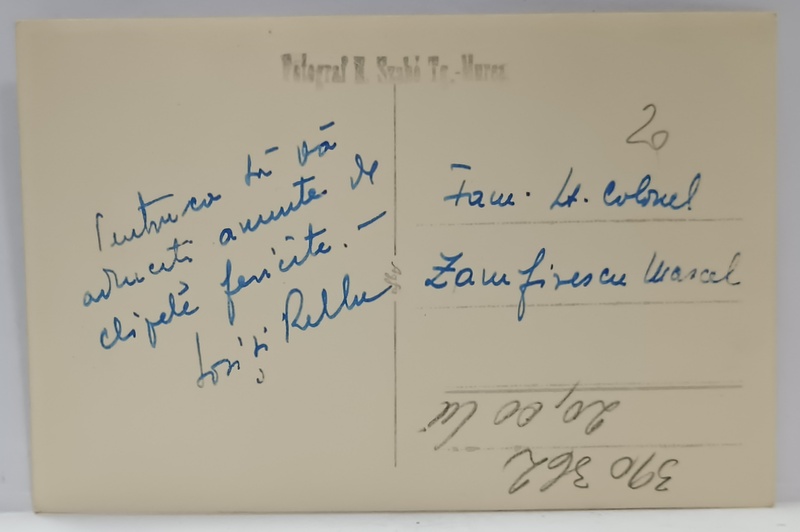 Fotograf N. Szabó Tg.-Mures
Pentru ca să vă
aduceti aminte de
clipele fericite. —
și
20
Fam. Lt. Colonel
Zamfirescu Marcel
20,00 lei
390 362